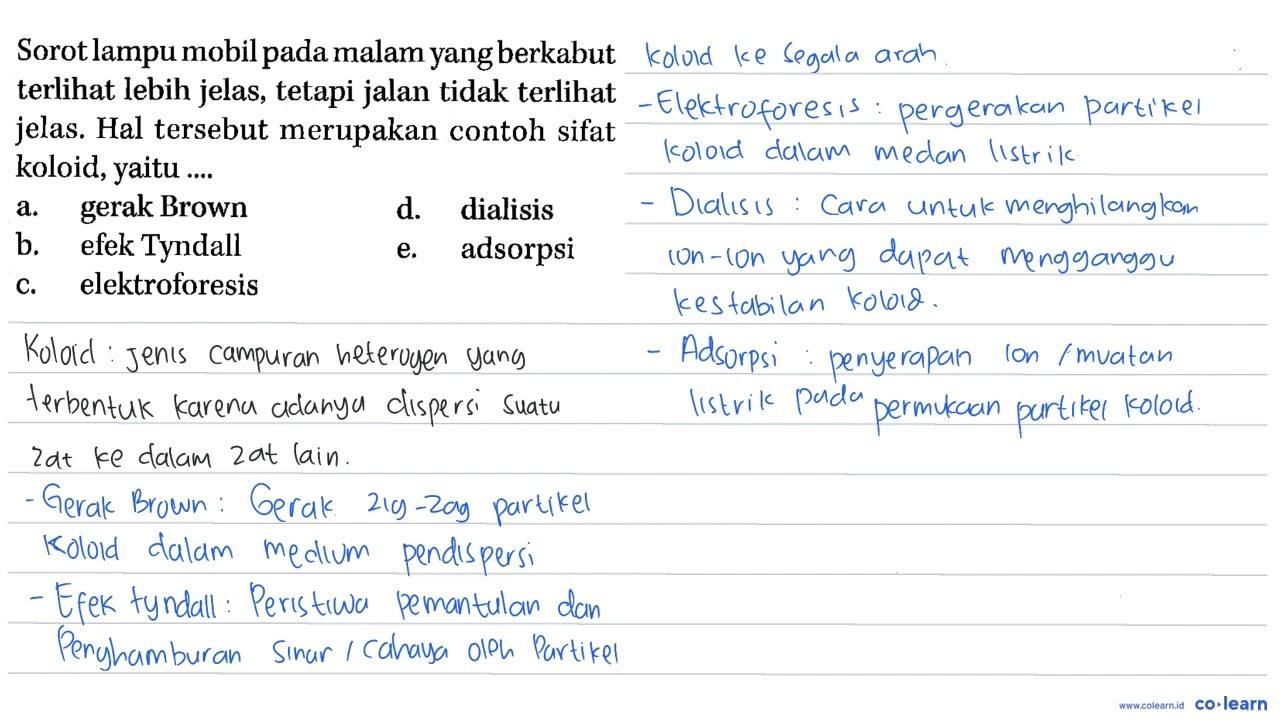 Sorot lampu mobil pada malam yang berkabut
terlihat lebih jelas, tetapi jalan tidak terlihat
jelas. Hal tersebut merupakan contoh sifat
koloid, yaitu ....
a. gerak Brown
b. efek Tyndall
c. elektroforesis
d. dialisis
e. adsorpsi
Koloid : jenis campuran heterogen yang
terbentuk karena adanya dispersi suatu
zat ke dalam zat lain.
- Gerak Brown : Gerak zig-zag partikel
koloid dalam medium pendispersi
- Efek tyndall : Peristiwa pemantulan dan
Penghamburan sinar / cahaya oleh Partikel
koloid ke segala arah.
- Elektroforesis : pergerakan partikel
koloid dalam medan listrik
- Dialisis : Cara untuk menghilangkan
ion-ion yang dapat mengganggu
kestabilan koloid.
- Adsorpsi : penyerapan ion / muatan
listrik pada permukaan partikel koloid.
www.colearn.id co·learn